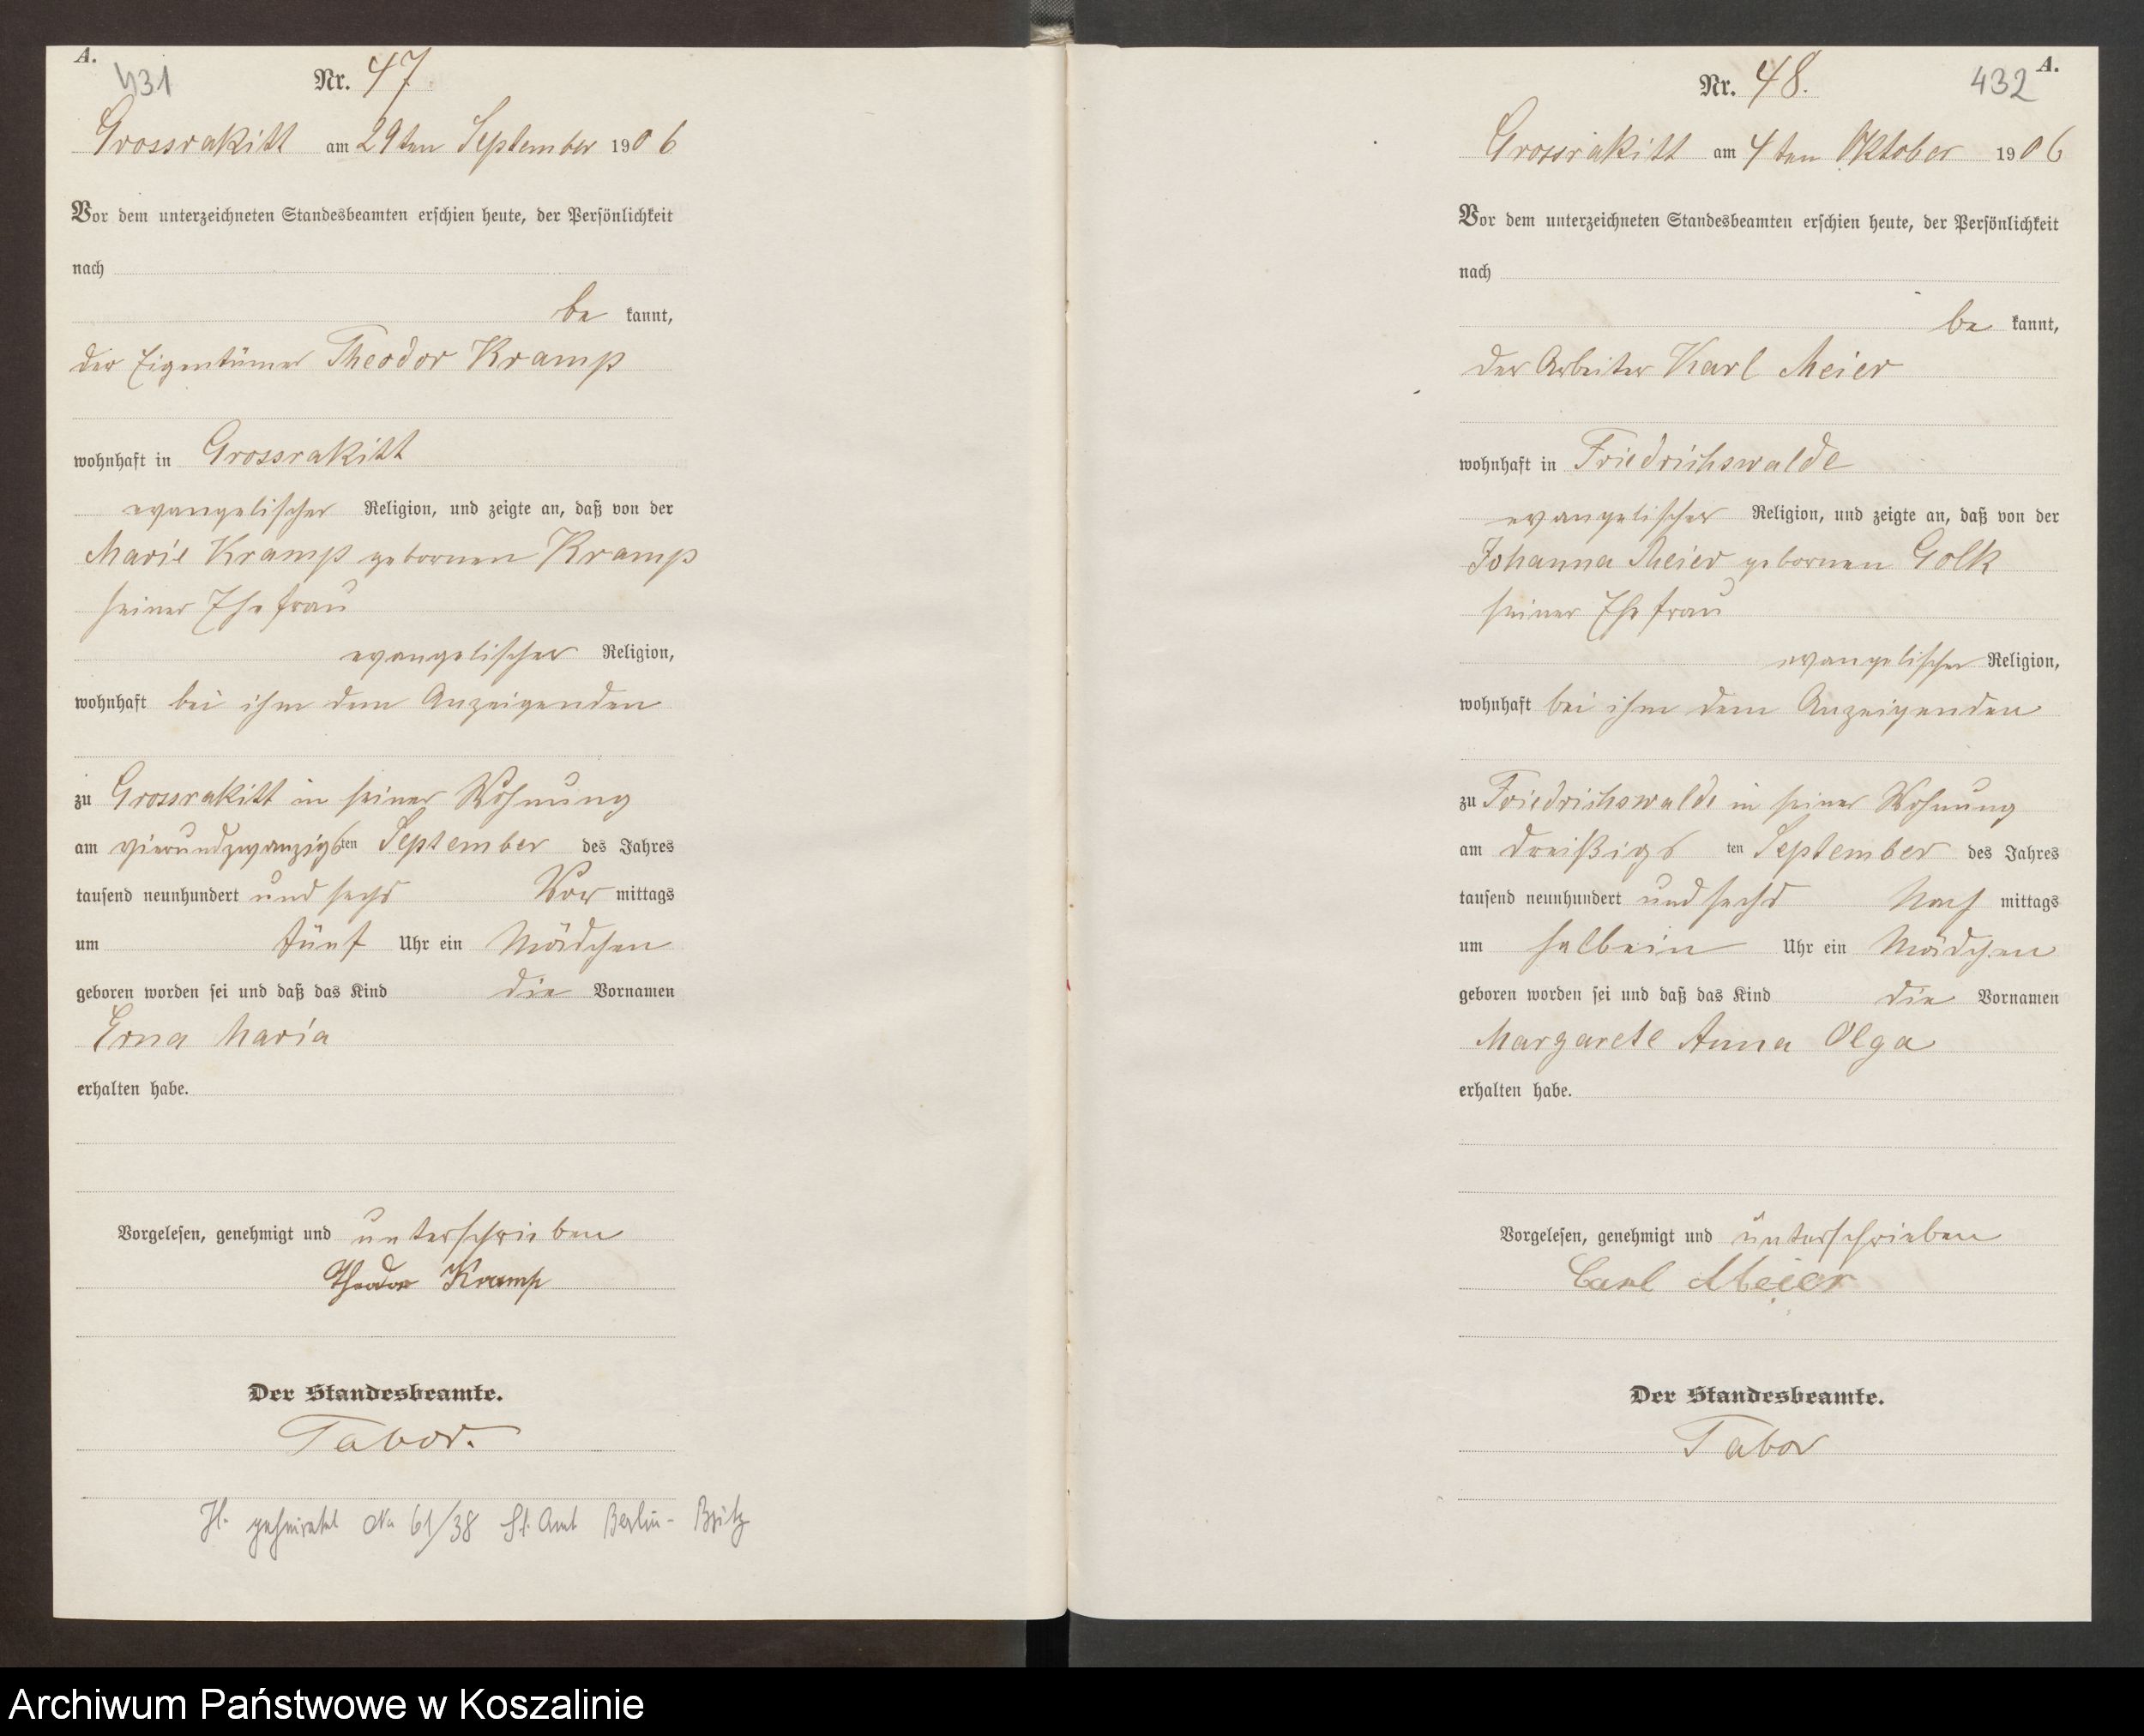 A.
431
Nr. 47
Grossrakitt am 29ten September 1906
Vor dem unterzeichneten Standesbeamten erschien heute, der Persönlichkeit
nach
be kannt,
der Eigentümer Theodor Kramp
wohnhaft in Grossrakitt
evangelischer Religion, und zeigte an, daß von der
Marie Kramp gebornen Kramp
seiner Ehefrau
evangelischer Religion,
wohnhaft bei ihm dem Anzeigenden
zu Grossrakitt in seiner Wohnung
am vierundzwanzigsten September des Jahres
tausend neunhundert und sechs Vor mittags
um fünf Uhr ein Mädchen
geboren worden sei und daß das Kind die Vornamen
Erna Maria
erhalten habe.
Vorgelesen, genehmigt und unterschrieben
Theodor Kramp
Der Standesbeamte.
Tabor.
H. geheiratet No 61/38 St. Amt Berlin-Britz
A.
432
Nr. 48.
Grossrakitt am 4ten Oktober 1906
Vor dem unterzeichneten Standesbeamten erschien heute, der Persönlichkeit
nach
be kannt,
der Arbeiter Karl Meier
wohnhaft in Friedrichswalde
evangelischer Religion, und zeigte an, daß von der
Johanna Meier gebornen Golk
seiner Ehefrau
evangelischer Religion,
wohnhaft bei ihm dem Anzeigenden
zu Friedrichswalde in seiner Wohnung
am dreißigs ten September des Jahres
tausend neunhundert und sechs Nach mittags
um halb ein Uhr ein Mädchen
geboren worden sei und daß das Kind die Vornamen
Margarete Anna Olga
erhalten habe.
Vorgelesen, genehmigt und unterschrieben
Carl Meier
Der Standesbeamte.
Tabor
Archiwum Państwowe w Koszalinie